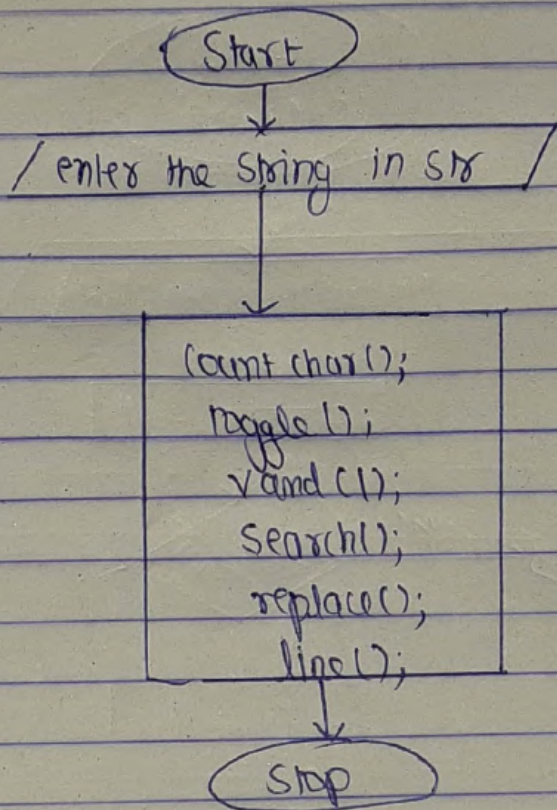 Start
enter the string in str
Count char();
toggle();
vandc();
search();
replace();
line();
Stop